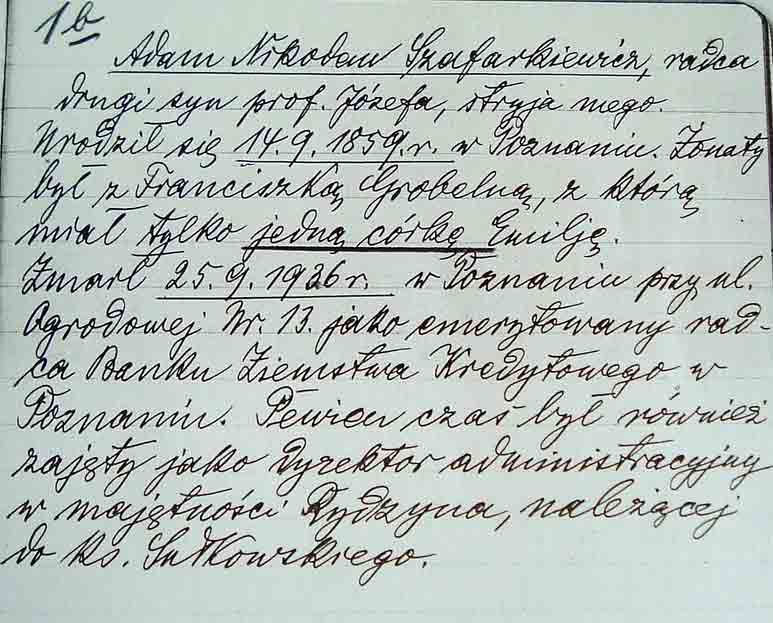 1b
Adam Nikodem Szafarkiewicz, radca
drugi syn prof. Józefa, stryja mego.
Urodził się 14.9.1859.r. w Poznaniu. Żonaty
był z Franciszką Grobelną, z którą
miał tylko jedną córkę Emilję.
Zmarł 25.9.1926 r. w Poznaniu przy ul.
Ogrodowej Nr. 13. jako emerytowany rad-
ca Banku Ziemstwa Kredytowego w
Poznaniu. Pewien czas był również
zajęty jako dyrektor administracyjny
w majętności Rydzyna, należącej
do ks. Sułkowskiego.